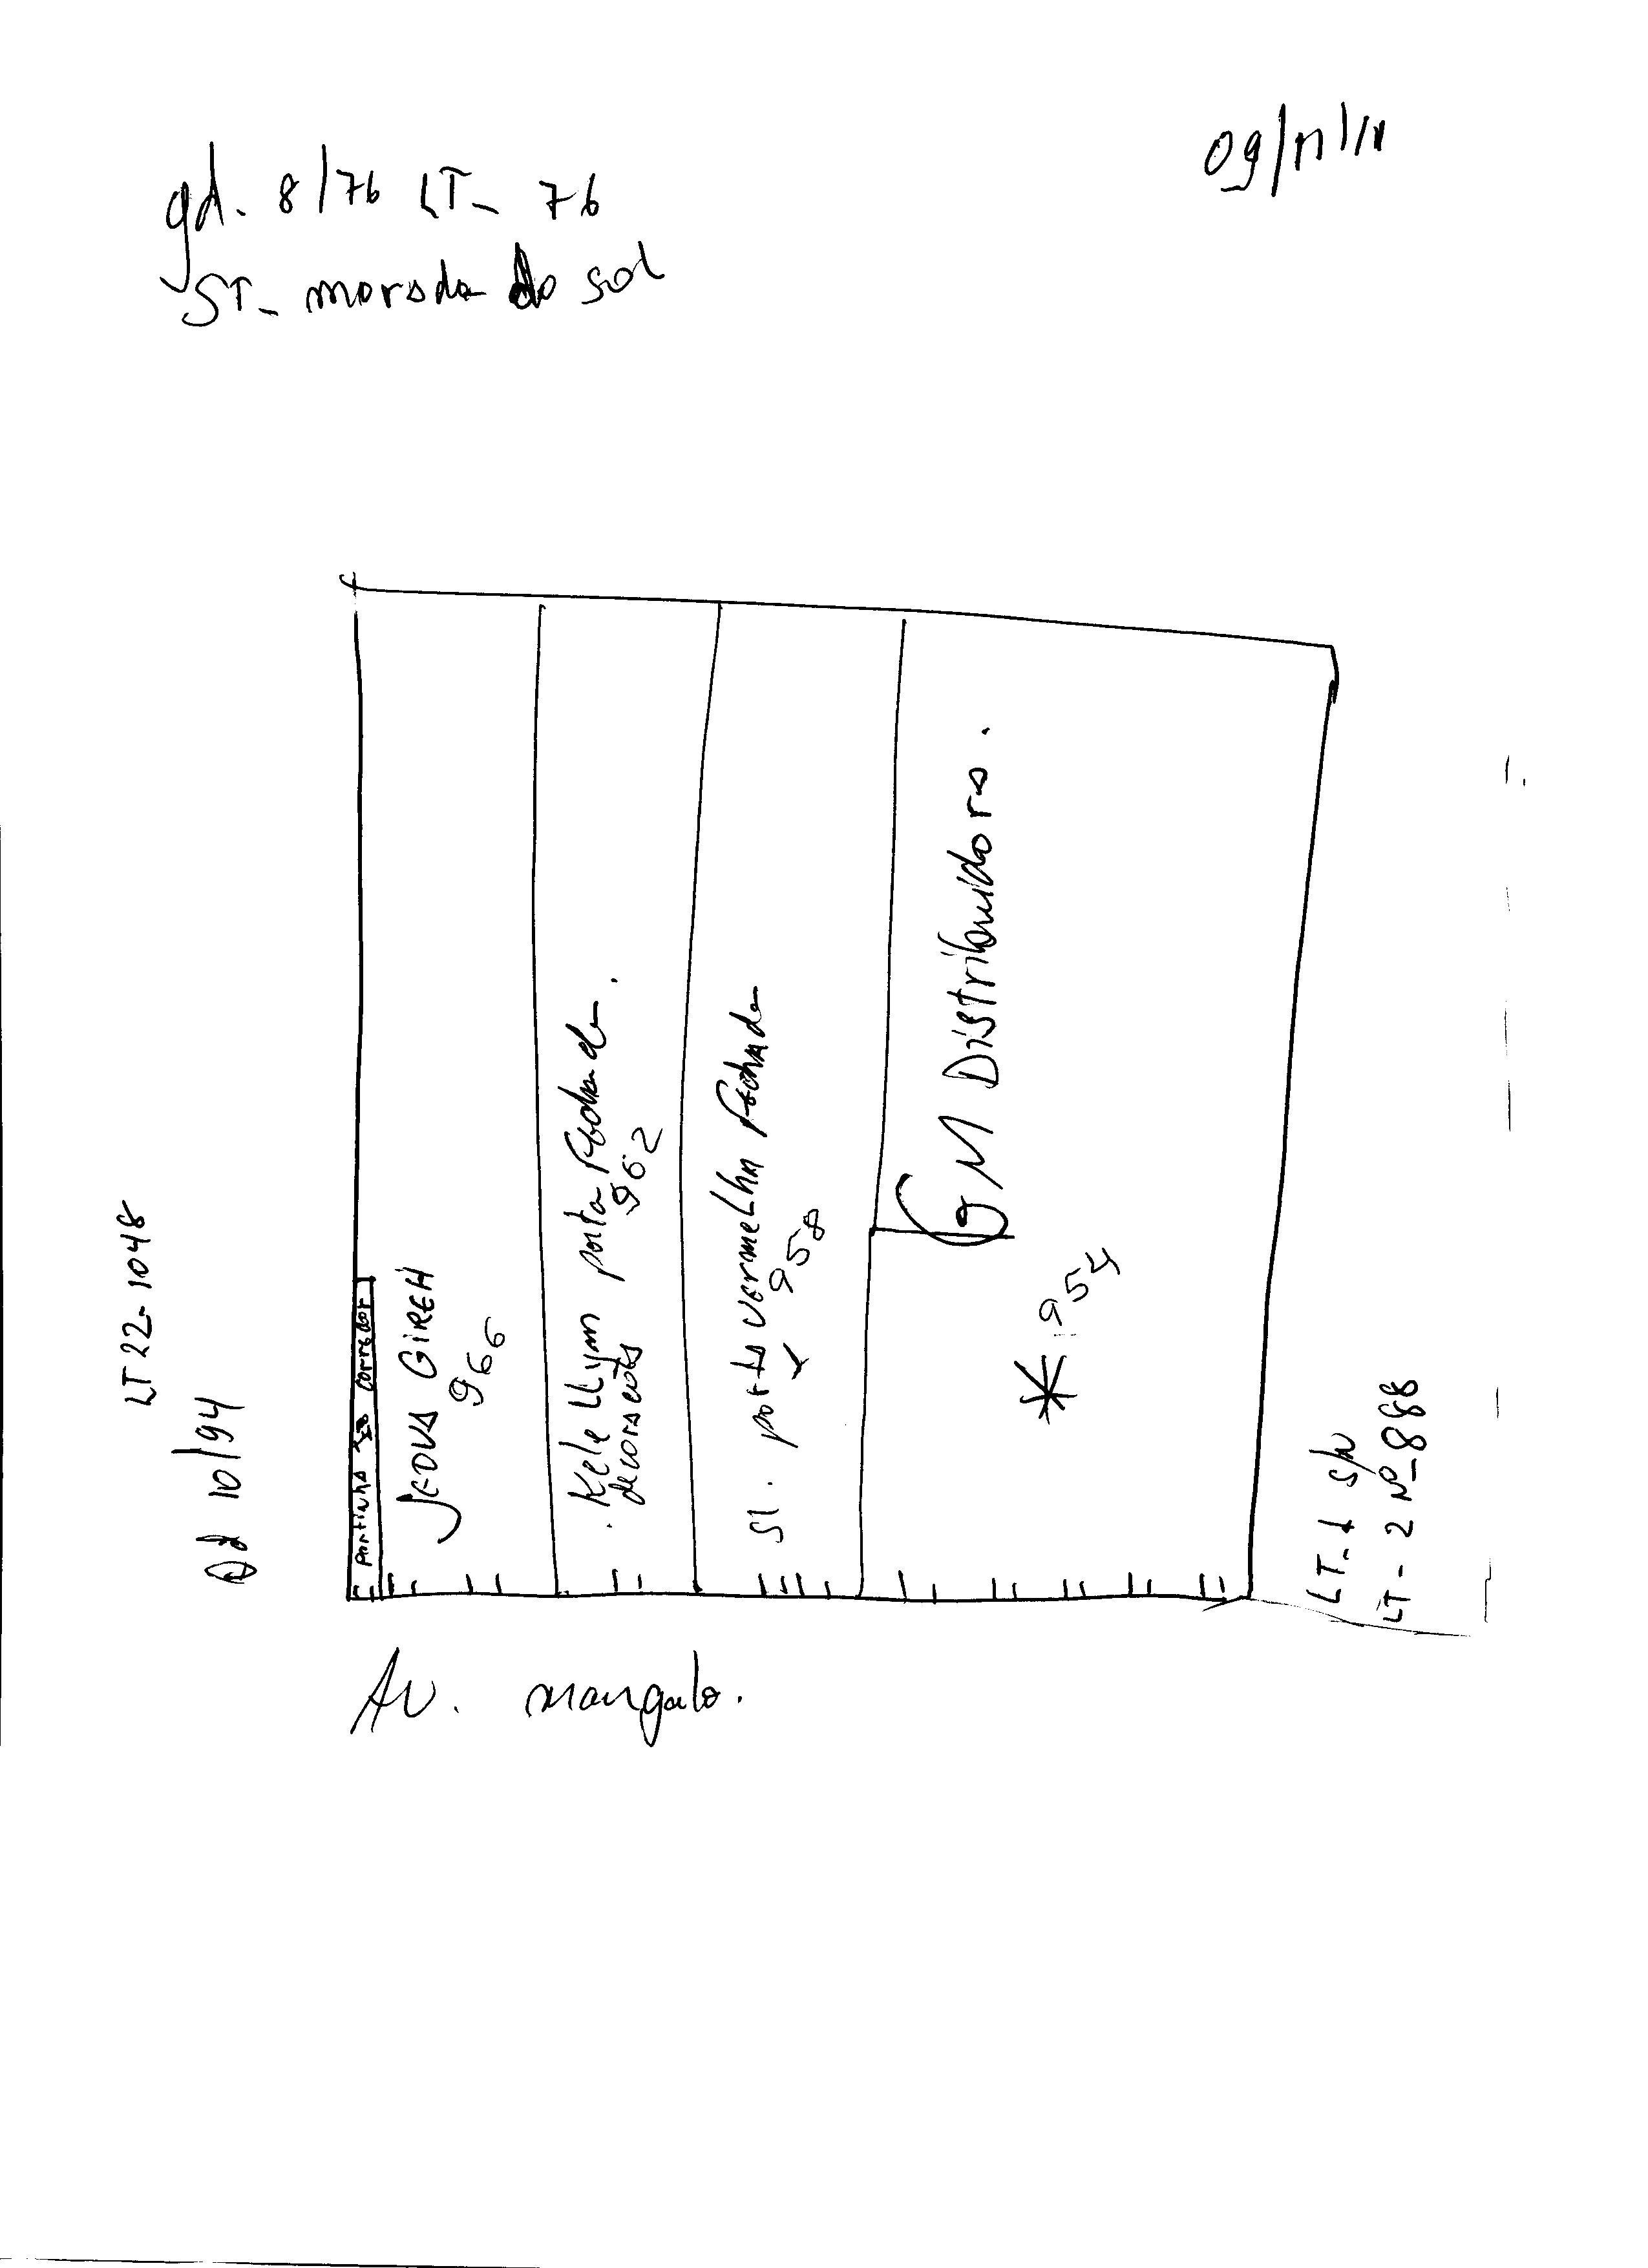 09/11/11
qd. 8/76 LT- 76
ST- morada do sol
LT 22-1048
Qd 10/94
portinha corredor
JEOVA GIREH
966
Kele LLym porta Fechada.
decorações
962
SL. porta vermeLha Fechada
958
GM Distribuidora.
* 954
LT-1 S/N
LT- 2 Nº 888
AV. mangalo.